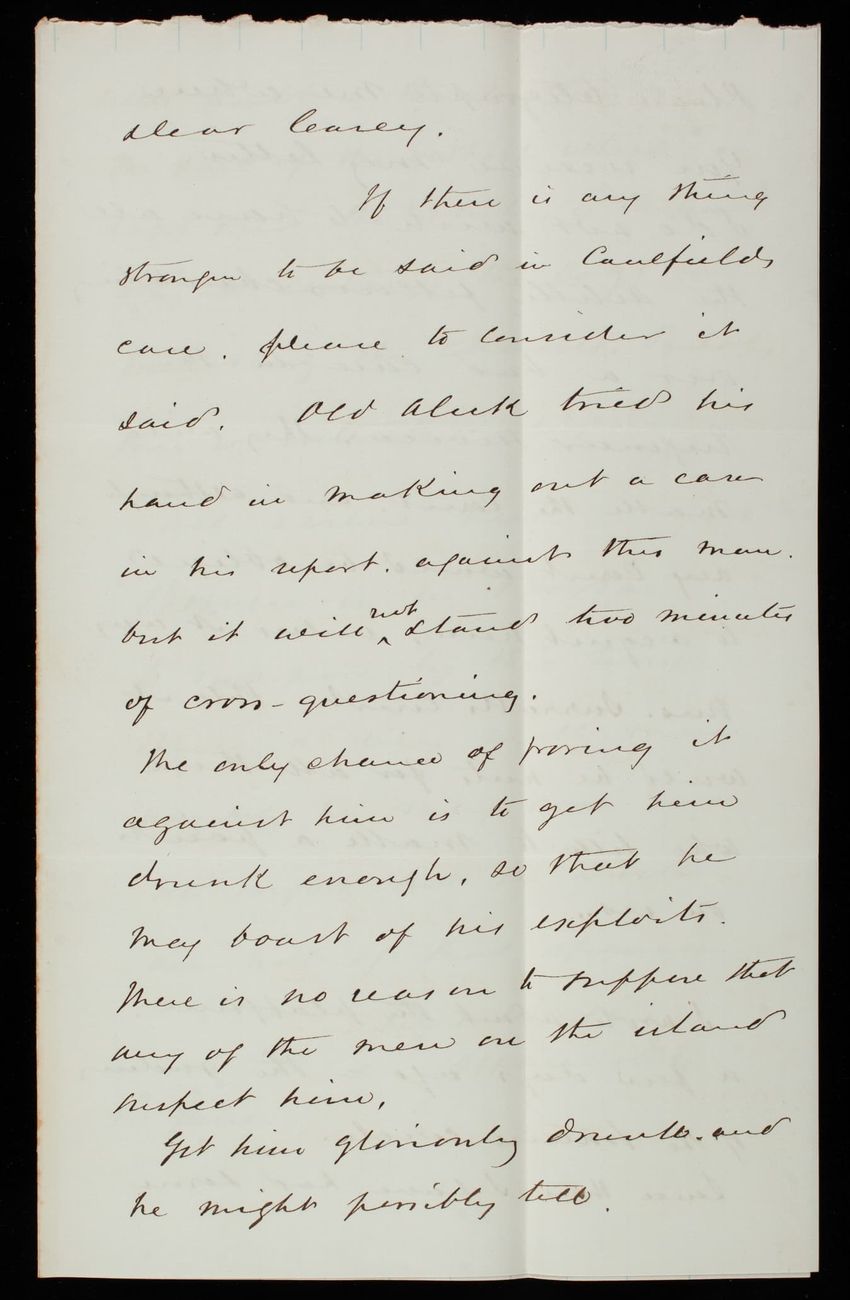 Dear Casey.
If there is any thing
stronger to be said in Caulfields
case, please to consider it
said. Old Aleck tried his
hand in making out a case
in his report. against this man.
but it will not stand two minutes
of cross-questioning.
The only chance of proving it
against him is to get him
drunk enough, so that he
may boast of his exploits.
There is no reason to suppose that
any of the men on the island
suspect him,
Get him gloriously drunk. and
he might possibly tell.